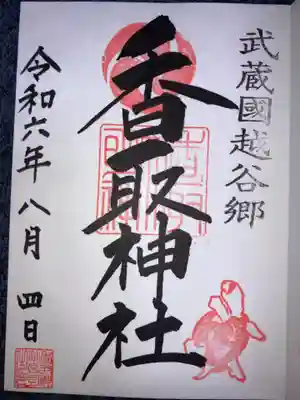 武蔵國越谷郷
香取神社
令和六年八月 四日